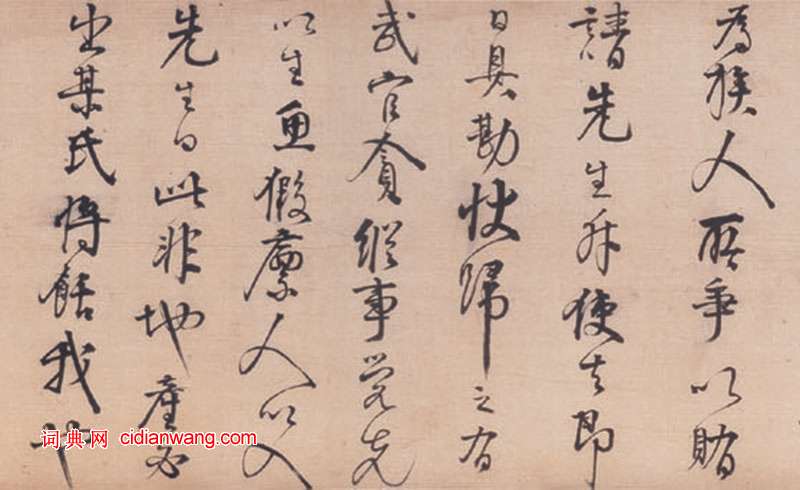 為族人所爭以賂
請先生斥使去即
日具勘狀歸之有
武官貪縱事覺先
以生魚假廩人以入
先生曰此非地產必
出某氏將餂我
词典网 cidianwang.com